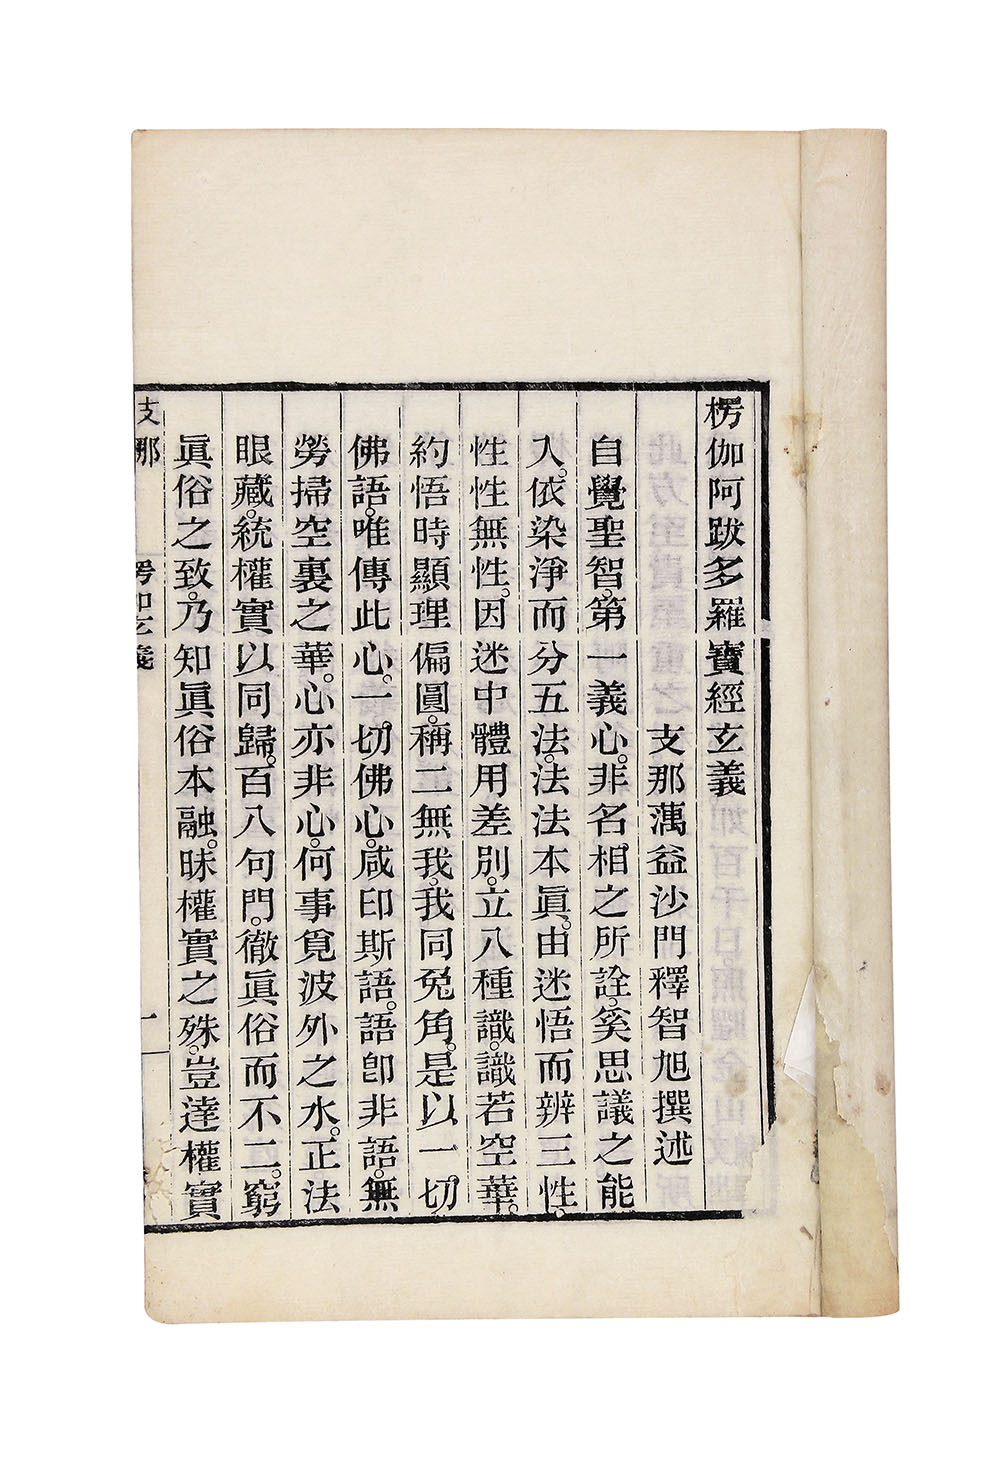 楞伽阿跋多羅寶經玄義
支那蕅益沙門釋智旭撰述
自覺聖智。第一義心。非名相之所詮。奚思議之能
入。依染淨而分五法。法法本眞。由迷悟而辨三性。
性性無性。因迷中體用差別。立八種識。識若空華。
約悟時顯理偏圓。稱二無我。我同兔角。是以一切
佛語。唯傳此心。一切佛心。咸印斯語。語卽非語。無
勞掃空裏之華。心亦非心。何事覓波外之水。正法
眼藏。統權實以同歸。百八句門。徹眞俗而不二。窮
眞俗之致。乃知眞俗本融。昧權實之殊。豈達權實
支那 楞伽玄義 一